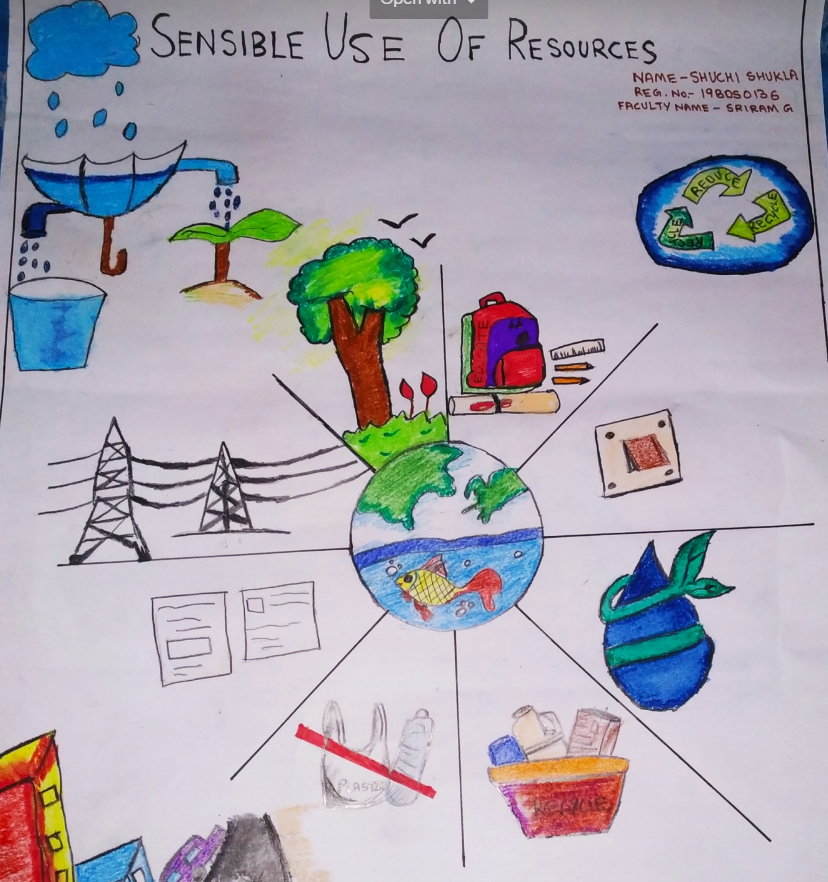 Open with
SENSIBLE USE OF RESOURCES
NAME-SHUCHI SHUKLA
REG. No.- 19BDS0136
FACULTY NAME - SRIRAM G
REDUCE
RECYCLE
EDUCATE
PLASTIC
RECYCLE